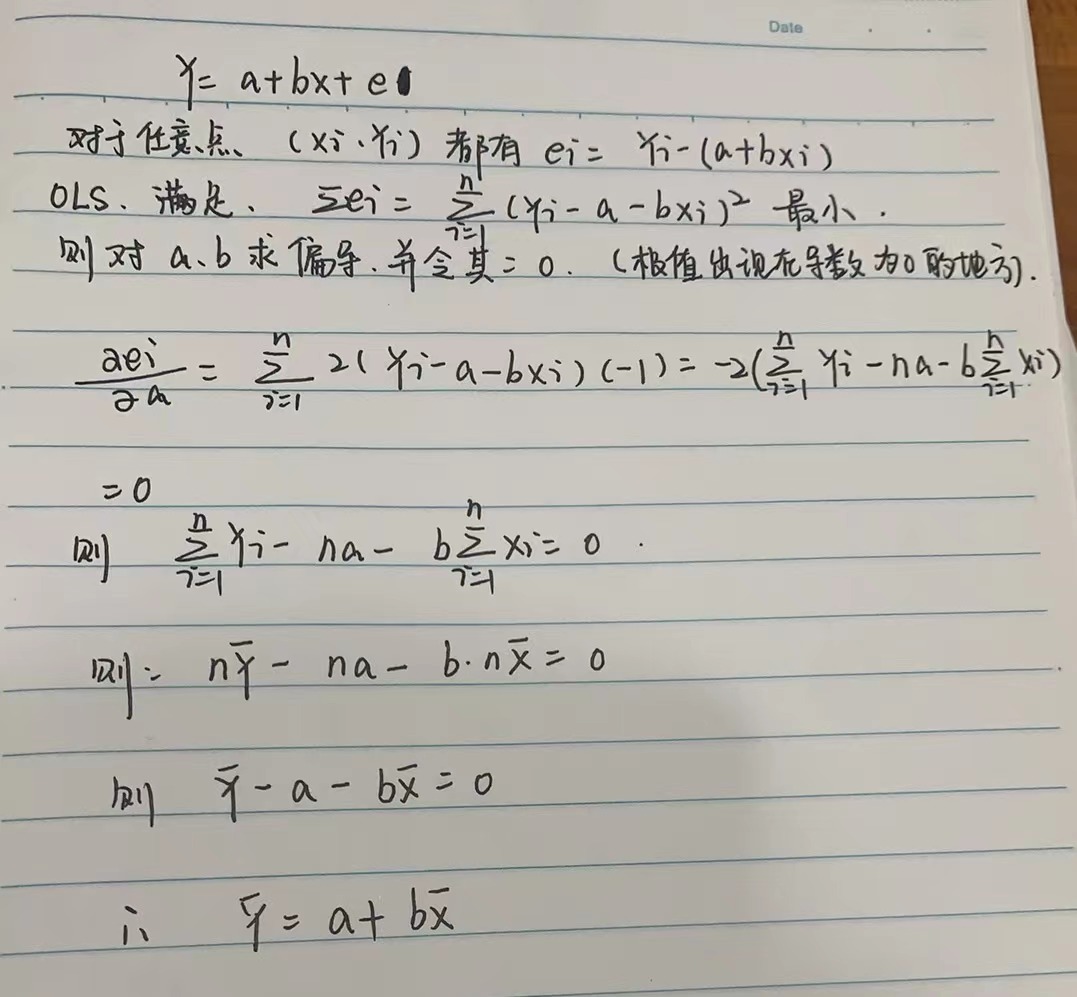 Date
Y = a+bx+e
对于任意点 (xi, Yi) 都有 ei = Yi-(a+bxi)
OLS. 满足. Σei = Σ_{i=1}^{n} (Yi - a - bxi)² 最小.
则对 a、b 求偏导.并令其=0. (极值出现在导数为0的地方).
∂ei/∂a = Σ_{i=1}^{n} 2(Yi-a-bxi)(-1) = -2(Σ_{i=1}^{n} Yi - na - bΣ_{i=1}^{n} xi)
=0
则 Σ_{i=1}^{n} Yi - na - bΣ_{i=1}^{n} xi = 0.
则: nȲ - na - b·nx̄ = 0
则 Ȳ - a - bx̄ = 0
∴ Ȳ = a + bx̄